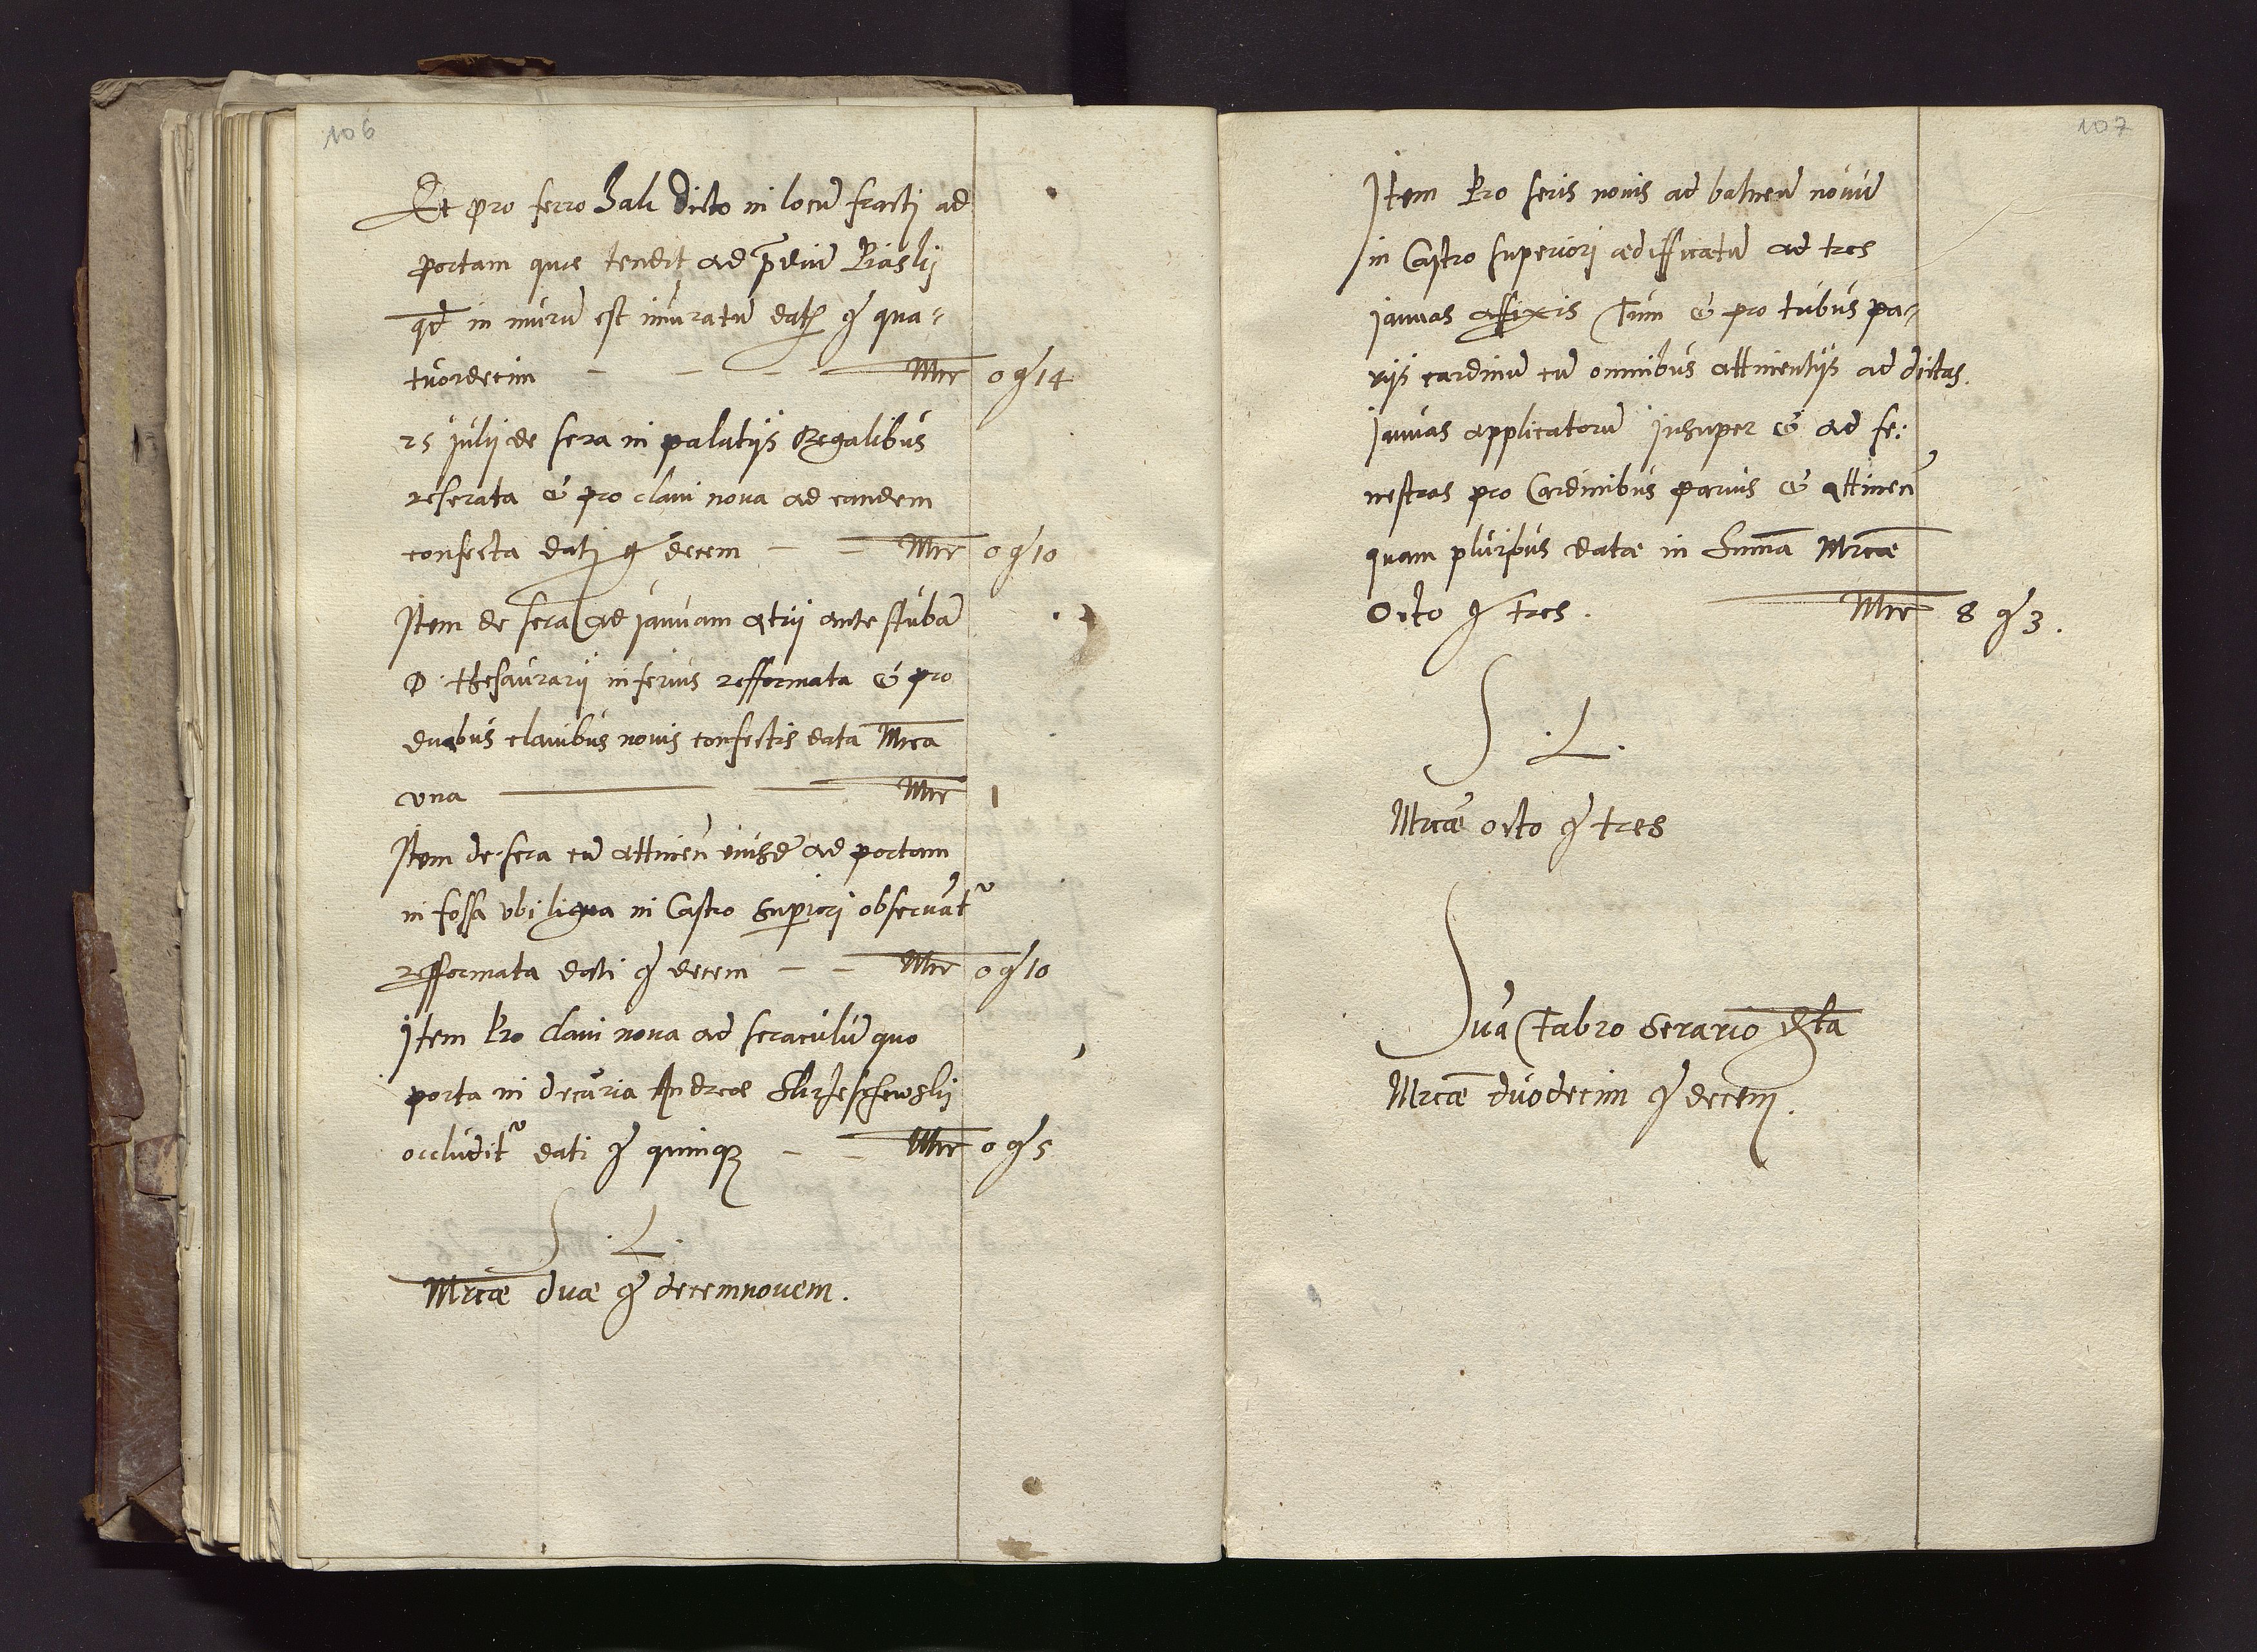 106
Et pro ferro Hak dicto in locū fracti ad
portam quæ tendit ad p̄diū Piasky
qd̄ in murū est im̄uratū dati gͦ qua-
tuordecim — — — Mrc 0 gͦ 14
25 julij de sera in palatijs Regalibus
reserata & pro claui noua ad eandem
confecta dati gͦ decem — — Mrc 0 gͦ 10
Item de sera ad januam atrij ante stubā
D. thesaurarij inferius refformata & pro
duabus clauibus nouis confectis data Mrca
vna — — Mrc 1
Item de sera cū attineñ eiusdē ad portam
in fossa vbi ligna in Castro Superiori obseruāt᷑
refformata dati gͦ decem — — Mrc 0 gͦ 10
Item Pro claui noua ad seraculū quo
porta in decuria Andreæ
occludit᷑ dati gͦ quinqꝫ — — Mrc 0 gͦ 5
S. L.
Mrcæ duæ gͦ decemnouem.
107
Item Pro seris nouis ad balneū nouū
in Castro superiori ædifficatū ad tres
januas affixis Tum & pro tribus pa-
rijs cardinū cū omnibus attinentijs ad dictas
januas applicatorū insuper & ad fe:
nestras pro Cardinibus paruis & attineñ
quam pluribus datæ in Summa Mrcæ
Octo gͦ tres. Mrc 8 gͦ 3.
S. L.
Mrcæ octo gͦ tres
Sūa Fabro Serario
Mrcæ duodecim gͦ decem.